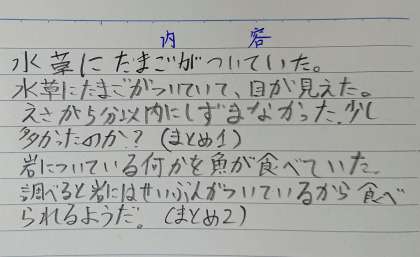 内容
水草にたまごがついていた。
水草にたまごがついていて、目が見えた。
えさが5分以内にしずまなかった。少し
多かったのか？(まとめ1)
岩についている何かを魚が食べていた。
調べると岩にはせいぶんがついているから食べ
られるようだ。(まとめ2)